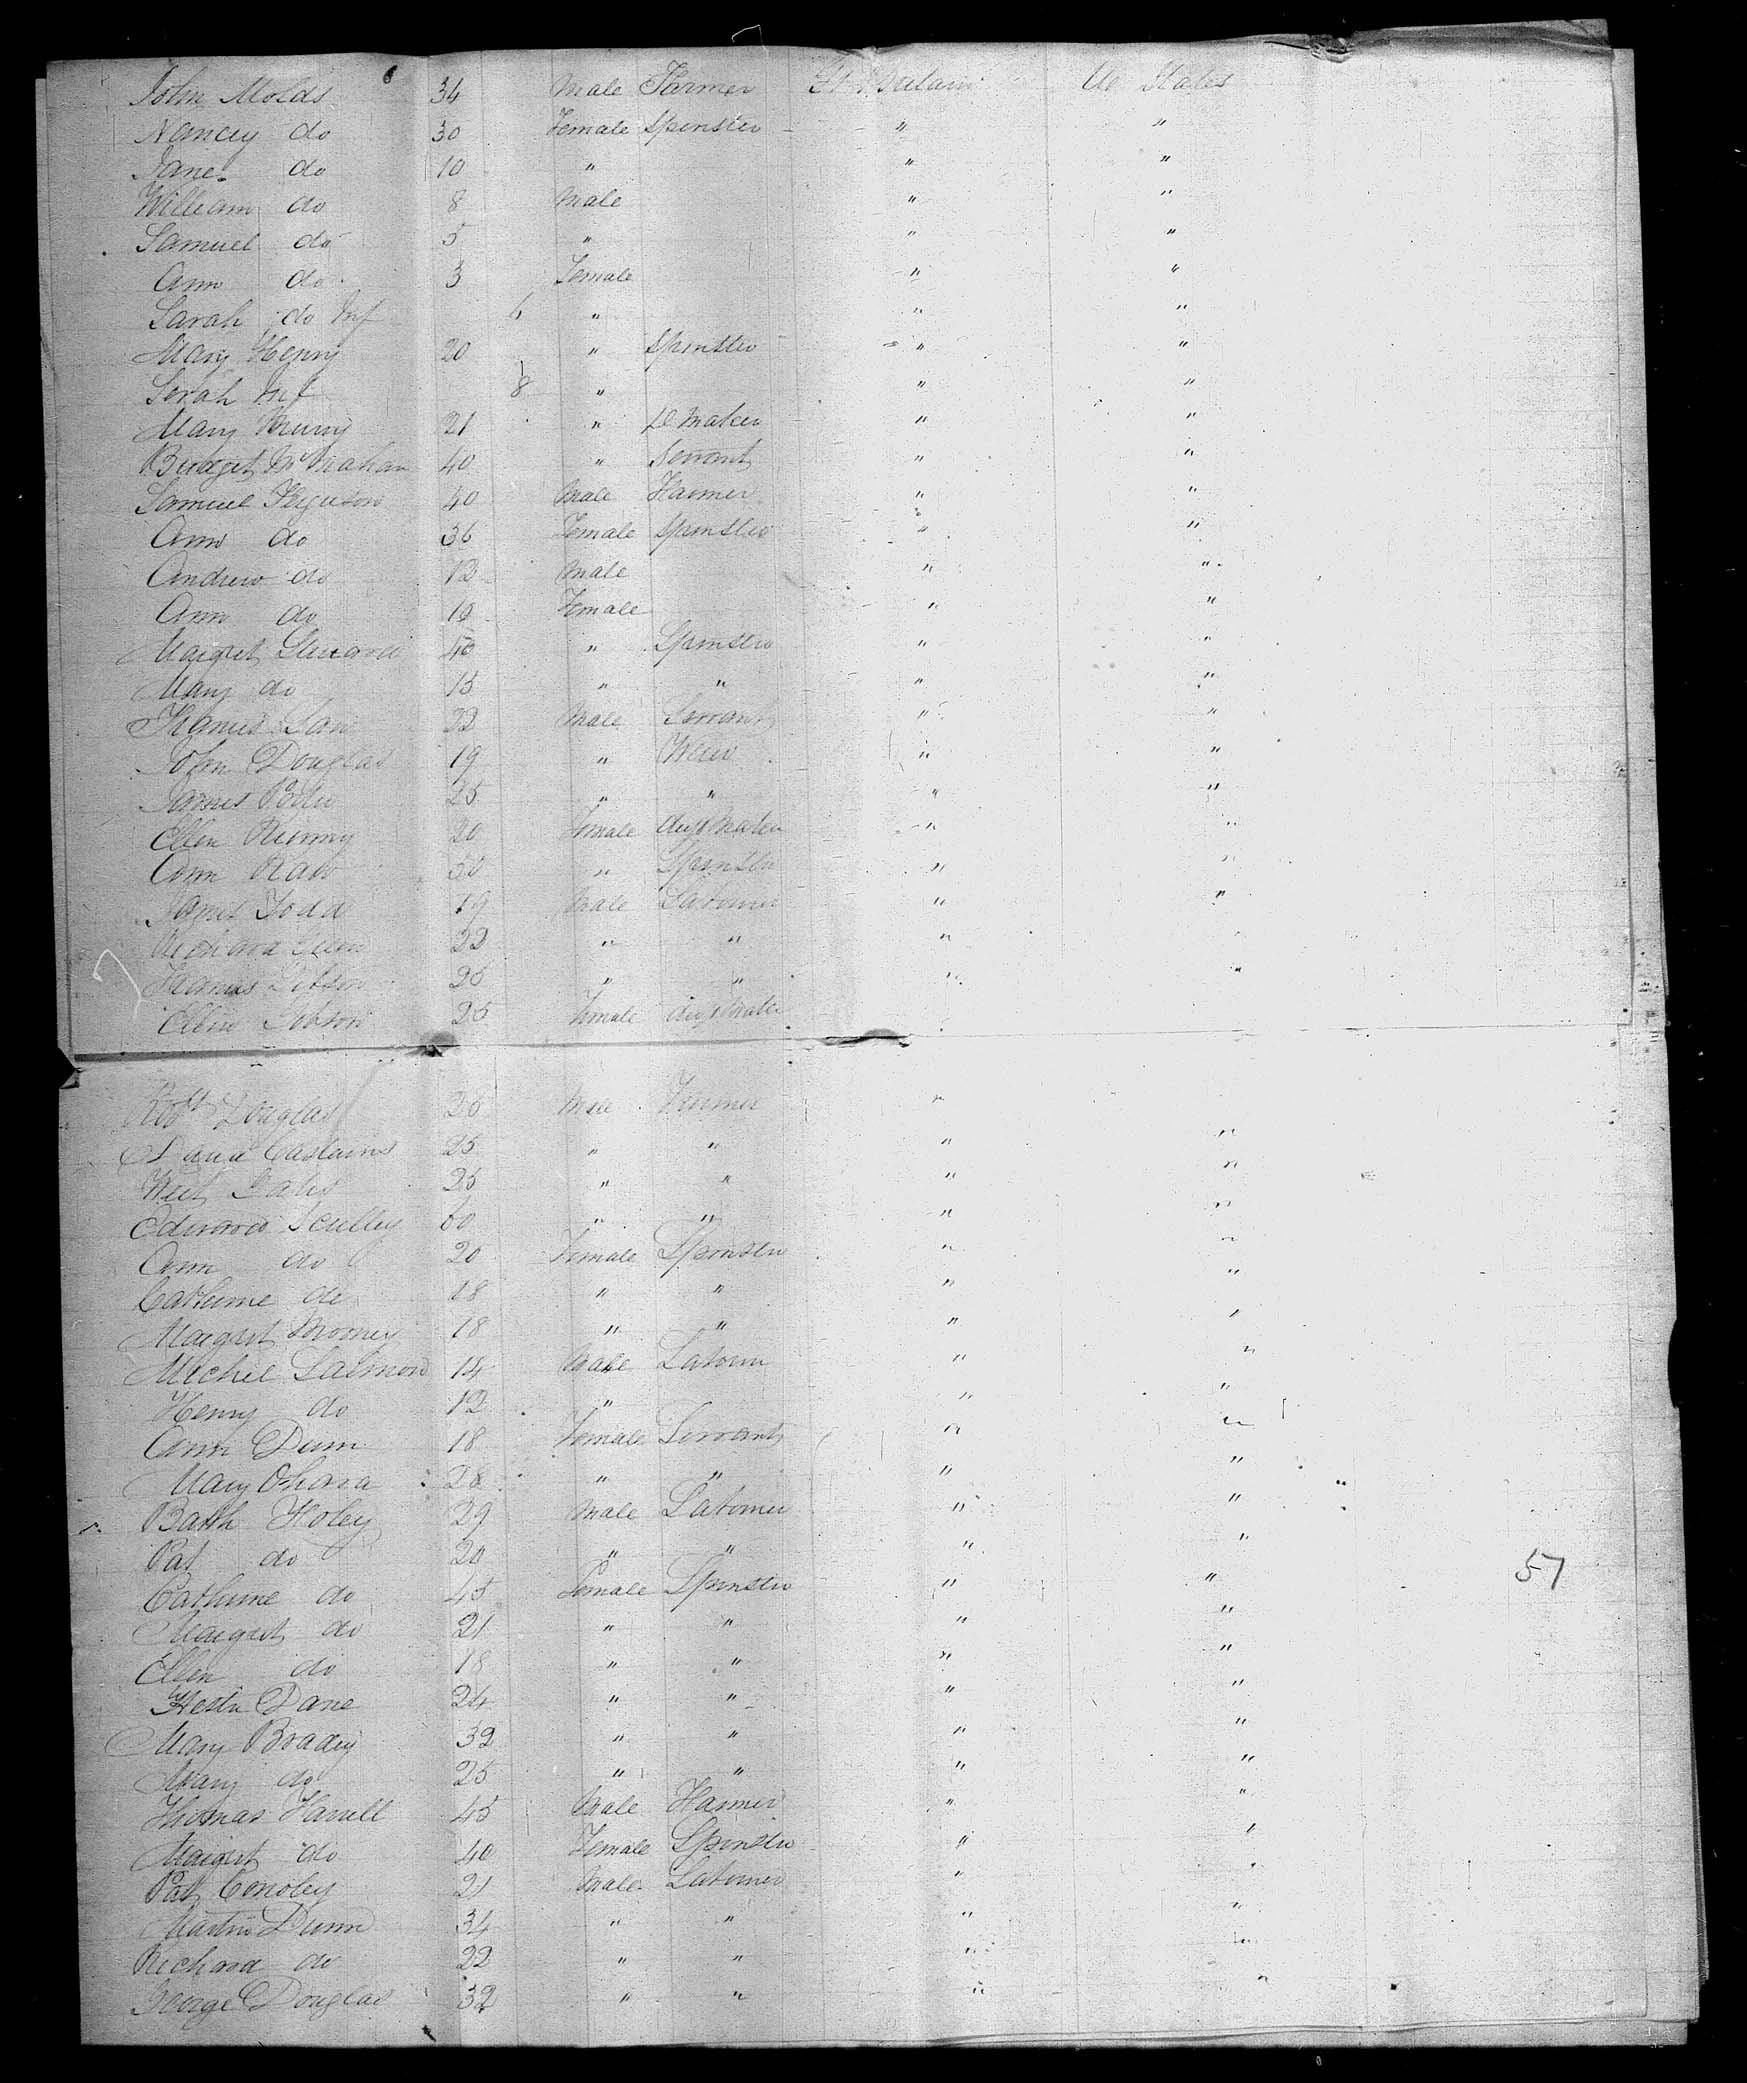 John Molds 34 Male Farmer Gt Britain Uo States
Nancey do 30 Female Spinster " "
Jane do 10 " " "
William do 8 Male " "
Samuel do 5 " " "
Ann do 3 Female " "
Sarah do Inf 6 " " "
Mary Henry 20 " Spinster " "
Sarah Inf 8 " " "
Mary 21 " D Maker " "
Bridget 40 " Servant " "
Samuel Ferguson 40 Male Farmer " "
Ann do 36 Female Spinster " "
Andrew do 13 Male " "
Ann do 10 Female " "
Margret 40 " Spinster " "
Mary do 15 " " " "
22 Male Servant " "
John Douglas 19 " " "
James 25 " " " "
Ellen 20 Female Maker " "
Ann 50 " Spinster " "
James Todd 19 Male Labourer " "
Richard 22 " " " "
25 " " " "
Ellen 25 Female Maker
Robt Douglas 26 Male Farmer "
25 " " " "
25 " " " "
Edward Sculley 60 " " " "
Ann do 20 Female Spinster " "
Catherine do 18 " " " "
Margret Mooney 18 " " " "
Michel Salmon 14 Male Labourer " "
Henry do 12 " " "
Ann Dunn 18 Female Servant " "
Mary Ohara 28 " " " "
Barth Holey 29 Male Labourer " "
Pat do 20 " " " "
Catherine do 45 Female Spinster " "
57
Margret do 21 " " " "
Ellen do 18 " " " "
Hester Dane 24 " " " "
Mary Brady 32 " " " "
Mary do 25 " " " "
Thomas 45 Male Farmer " "
Margret do 40 Female Spinster " "
Pat Conoley 21 Male Labourer " "
Martin Dunn 34 " " " "
Richard do 22 " " " "
George Douglas 32 " " " "